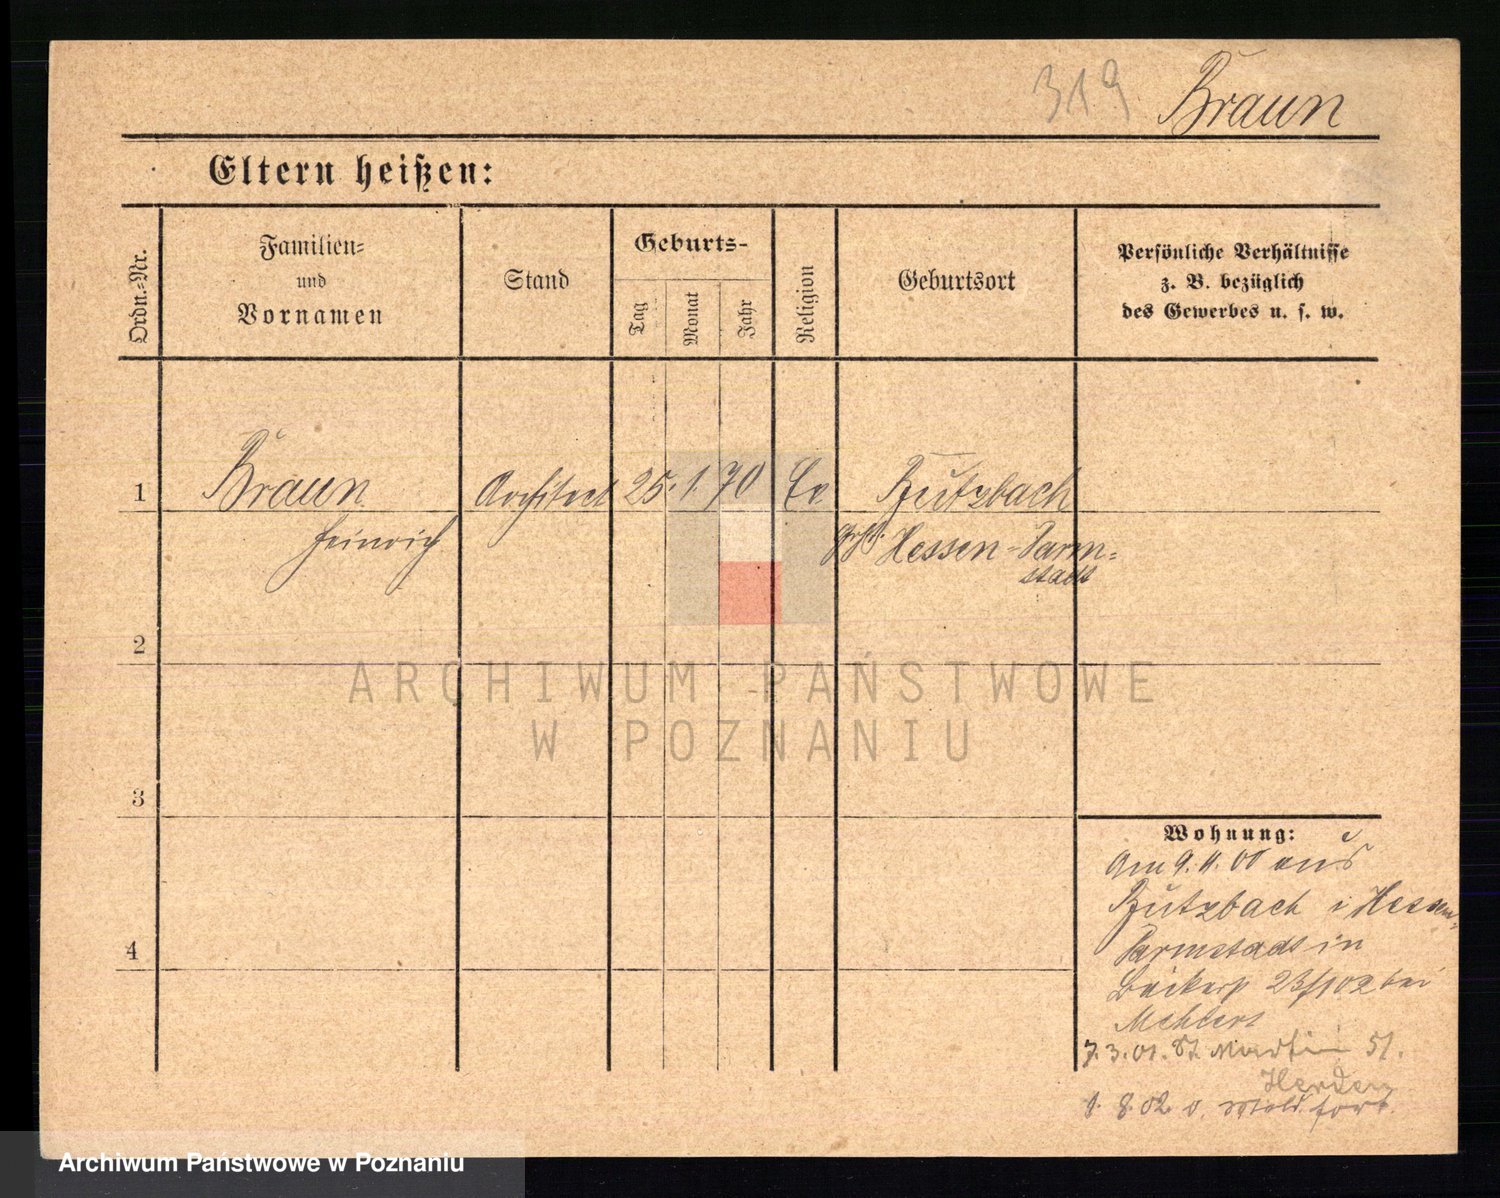 319 Braun
Eltern heißen:
Ordn.-Nr.
Familien-
und
Vornamen
Stand
Geburts-
Tag
Monat
Jahr
Religion
Geburtsort
Persönliche Verhältnisse
z. B. bezüglich
des Gewerbes u. s. w.
1
Braun
Heinrich
Architect
25. 1. 70
Ev
Butzbach
Hessen-Darm-
stadt
2
3
4
Wohnung:
Am 9. 11. 00 aus
Butzbach i Hessen-
Darmstadt in
bei
7. 3. 01. St. Martin 51.
Herden
8. 02 o. Meld. fort.
ARCHIWUM PAŃSTWOWE
W POZNANIU
Archiwum Państwowe w Poznaniu